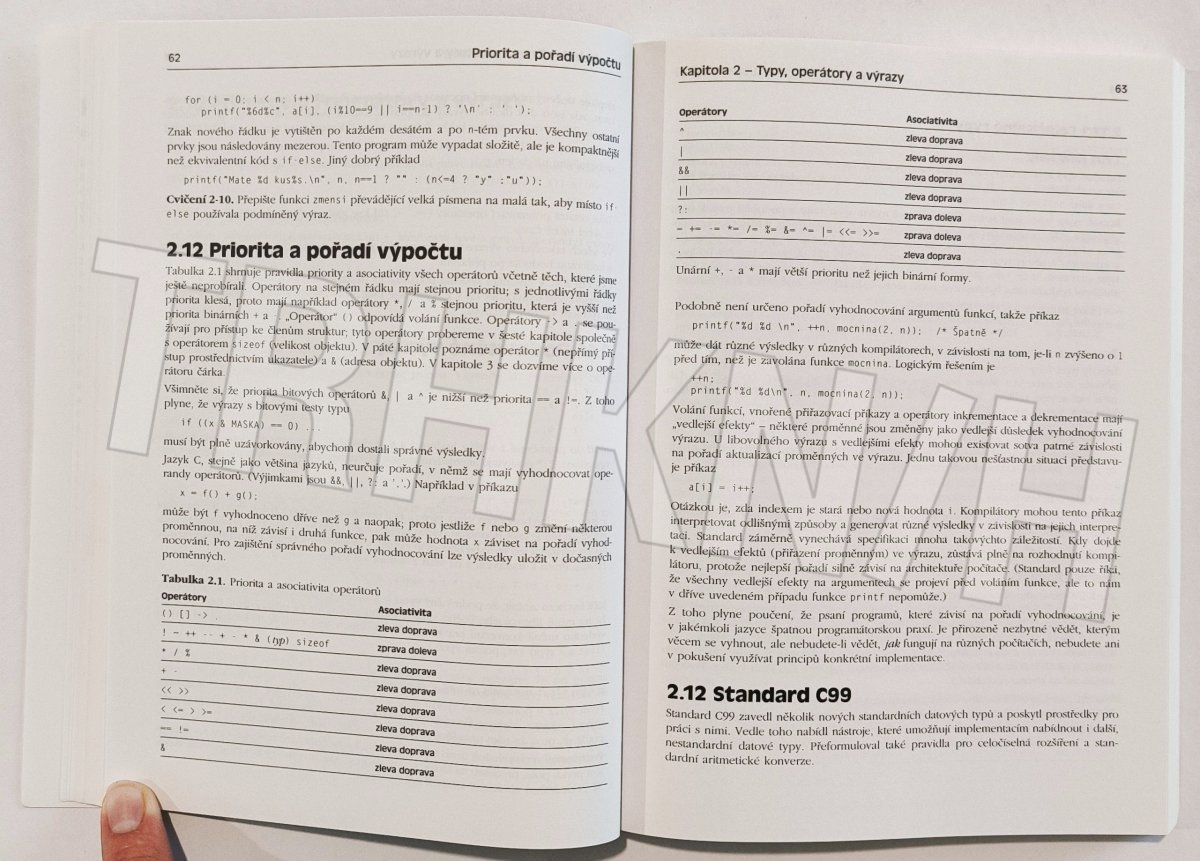 62
Priorita a pořadí výpočtu
for (i = 0; i < n; i++)
printf("%6d%c", a[i], (i%10==9 || i==n-1) ? '\n' : ' ');
Znak nového řádku je vytištěn po každém desátém a po n-tém prvku. Všechny ostatní
prvky jsou následovány mezerou. Tento program může vypadat složitě, ale je kompaktnější
než ekvivalentní kód s if-else. Jiný dobrý příklad
printf("Mate %d kus%s.\n", n, n==1 ? "" : (n<=4 ? "y" :"u"));
Cvičení 2-10. Přepište funkci zmensi převádějící velká písmena na malá tak, aby místo if-
else používala podmíněný výraz.
2.12 Priorita a pořadí výpočtu
Tabulka 2.1 shrnuje pravidla priority a asociativity všech operátorů včetně těch, které jsme
ještě neprobírali. Operátory na stejném řádku mají stejnou prioritu; s jednotlivými řádky
priorita klesá, proto mají například operátory *, / a % stejnou prioritu, která je vyšší než
priorita binárních + a -. „Operátor“ () odpovídá volání funkce. Operátory -> a . se pou-
žívají pro přístup ke členům struktur; tyto operátory probereme v šesté kapitole společně
s operátorem sizeof (velikost objektu). V páté kapitole poznáme operátor * (nepřímý pří-
stup prostřednictvím ukazatele) a & (adresa objektu). V kapitole 3 se dozvíme více o ope-
rátoru čárka.
Všimněte si, že priorita bitových operátorů &, | a ^ je nižší než priorita == a !=. Z toho
plyne, že výrazy s bitovými testy typu
if ((x & MASKA) == 0) ...
musí být plně uzávorkovány, abychom dostali správné výsledky.
Jazyk C, stejně jako většina jazyků, neurčuje pořadí, v němž se mají vyhodnocovat ope-
randy operátorů. (Výjimkami jsou &&, ||, ?: a ','.) Například v příkazu
x = f() + g();
může být f vyhodnoceno dříve než g a naopak; proto jestliže f nebo g změní některou
proměnnou, na níž závisí i druhá funkce, pak může hodnota x záviset na pořadí vyhod-
nocování. Pro zajištění správného pořadí vyhodnocování lze výsledky uložit v dočasných
proměnných.
Tabulka 2.1. Priorita a asociativita operátorů
Operátory Asociativita
() [] -> . zleva doprava
! ~ ++ -- + - * & (typ) sizeof zprava doleva
* / % zleva doprava
+ - zleva doprava
<< >> zleva doprava
< <= > >= zleva doprava
== != zleva doprava
& zleva doprava
Kapitola 2 – Typy, operátory a výrazy
63
Operátory Asociativita
^ zleva doprava
| zleva doprava
&& zleva doprava
|| zleva doprava
?: zprava doleva
= += -= *= /= %= &= ^= |= <<= >>= zprava doleva
, zleva doprava
Unární +, - a * mají větší prioritu než jejich binární formy.
Podobně není určeno pořadí vyhodnocování argumentů funkcí, takže příkaz
printf("%d %d \n", ++n, mocnina(2, n)); /* Špatně */
může dát různé výsledky v různých kompilátorech, v závislosti na tom, je-li n zvýšeno o 1
před tím, než je zavolána funkce mocnina. Logickým řešením je
++n;
printf("%d %d\n", n, mocnina(2, n));
Volání funkcí, vnořené přiřazovací příkazy a operátory inkrementace a dekrementace mají
„vedlejší efekty“ – některé proměnné jsou změněny jako vedlejší důsledek vyhodnocování
výrazu. U libovolného výrazu s vedlejšími efekty mohou existovat sotva patrné závislosti
na pořadí aktualizací proměnných ve výrazu. Jednu takovou nešťastnou situaci představu-
je příkaz
a[i] = i++;
Otázkou je, zda indexem je stará nebo nová hodnota i. Kompilátory mohou tento příkaz
interpretovat odlišnými způsoby a generovat různé výsledky v závislosti na jejich interpre-
taci. Standard záměrně vynechává specifikaci mnoha takovýchto záležitostí. Kdy dojde
k vedlejším efektů (přiřazení proměnným) ve výrazu, zůstává plně na rozhodnutí kompi-
látoru, protože nejlepší pořadí silně závisí na architektuře počítače. (Standard pouze říká,
že všechny vedlejší efekty na argumentech se projeví před voláním funkce, ale to nám
v dříve uvedeném případu funkce printf nepomůže.)
Z toho plyne poučení, že psaní programů, které závisí na pořadí vyhodnocování, je
v jakémkoli jazyce špatnou programátorskou praxí. Je přirozeně nezbytné vědět, kterým
věcem se vyhnout, ale nebudete-li vědět, jak fungují na různých počítačích, nebudete ani
v pokušení využívat principů konkrétní implementace.
2.12 Standard C99
Standard C99 zavedl několik nových standardních datových typů a poskytl prostředky pro
práci s nimi. Vedle toho nabídl nástroje, které umožňují implementacím nabídnout i další,
nestandardní datové typy. Přeformuloval také pravidla pro celočíselná rozšíření a stan-
dardní aritmetické konverze.
TRHKNIH